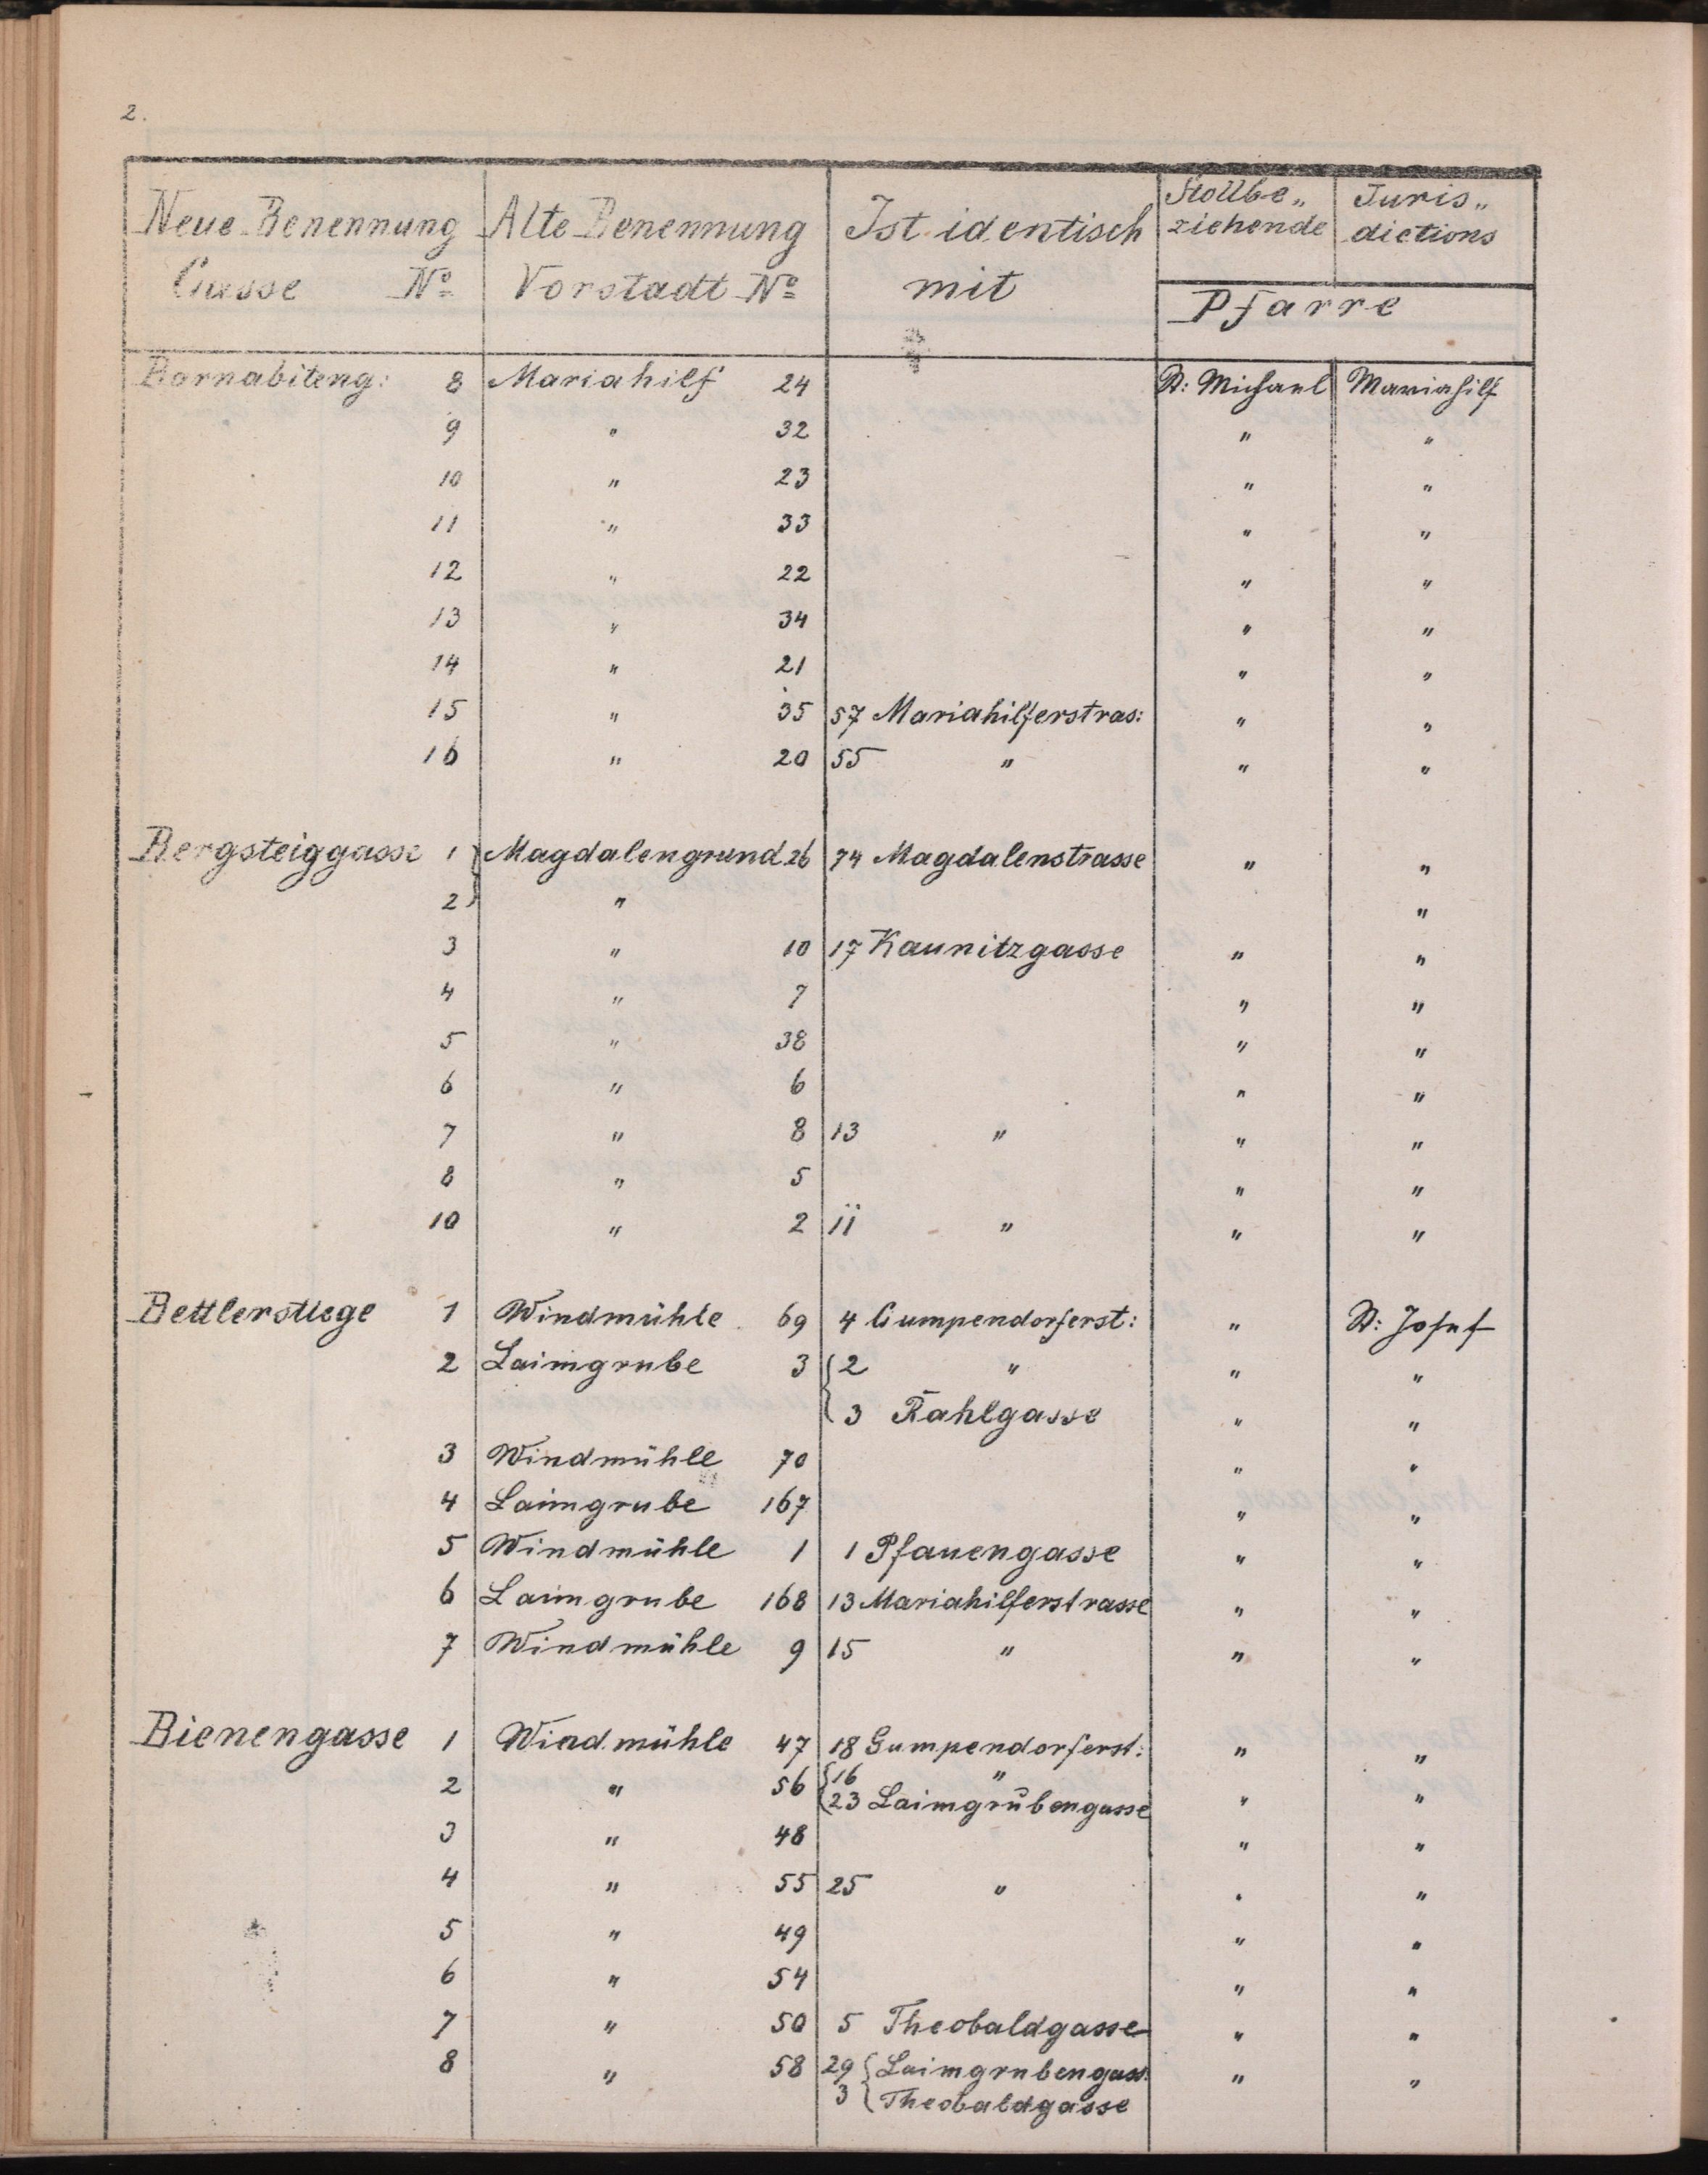 2.
Neue Benennung Alte Benennung Ist identisch Stollbe„ Juris„
ziehende dictions
Gasse No Vorstadt No mit Pfarre
Barnabiteng: 8 Mariahilf 24 St: Michael Mariahilf
9 " 32 " "
10 " 23 " "
11 " 33 " "
12 " 22 " "
13 " 34 " "
14 " 21 " "
15 " 35 57 Mariahilferstras: " "
16 " 20 55 " " "
Bergsteiggasse 1 } Magdalengrund 26 74 Magdalenstrasse " "
2 } " "
3 " 10 17 Kaunitzgasse " "
4 " 7 " "
5 " 38 " "
6 " 6 " "
7 " 8 13 " " "
8 " 5 " "
10 " 2 11 " " "
Bettlerstiege 1 Windmühle 69 4 Gumpendorferst: " St: Josef
2 Laimgrube 3 { 2 " " "
{ 3 Rahlgasse " "
3 Windmühle 70 " "
4 Laimgrube 167 " "
5 Windmühle 1 1 Pfauengasse " "
6 Laimgrube 168 13 Mariahilferstrasse " "
7 Windmühle 9 15 " " "
Bienengasse 1 Windmühle 47 18 Gumpendorferst: " "
2 " 56 { 16 "
{ 23 Laimgrubengasse " "
3 " 48 " "
4 " 55 25 " " "
5 " 49 " "
6 " 54 " "
7 " 50 5 Theobaldgasse " "
8 " 58 29 { Laimgrubengass: " "
3 { Theobaldgasse